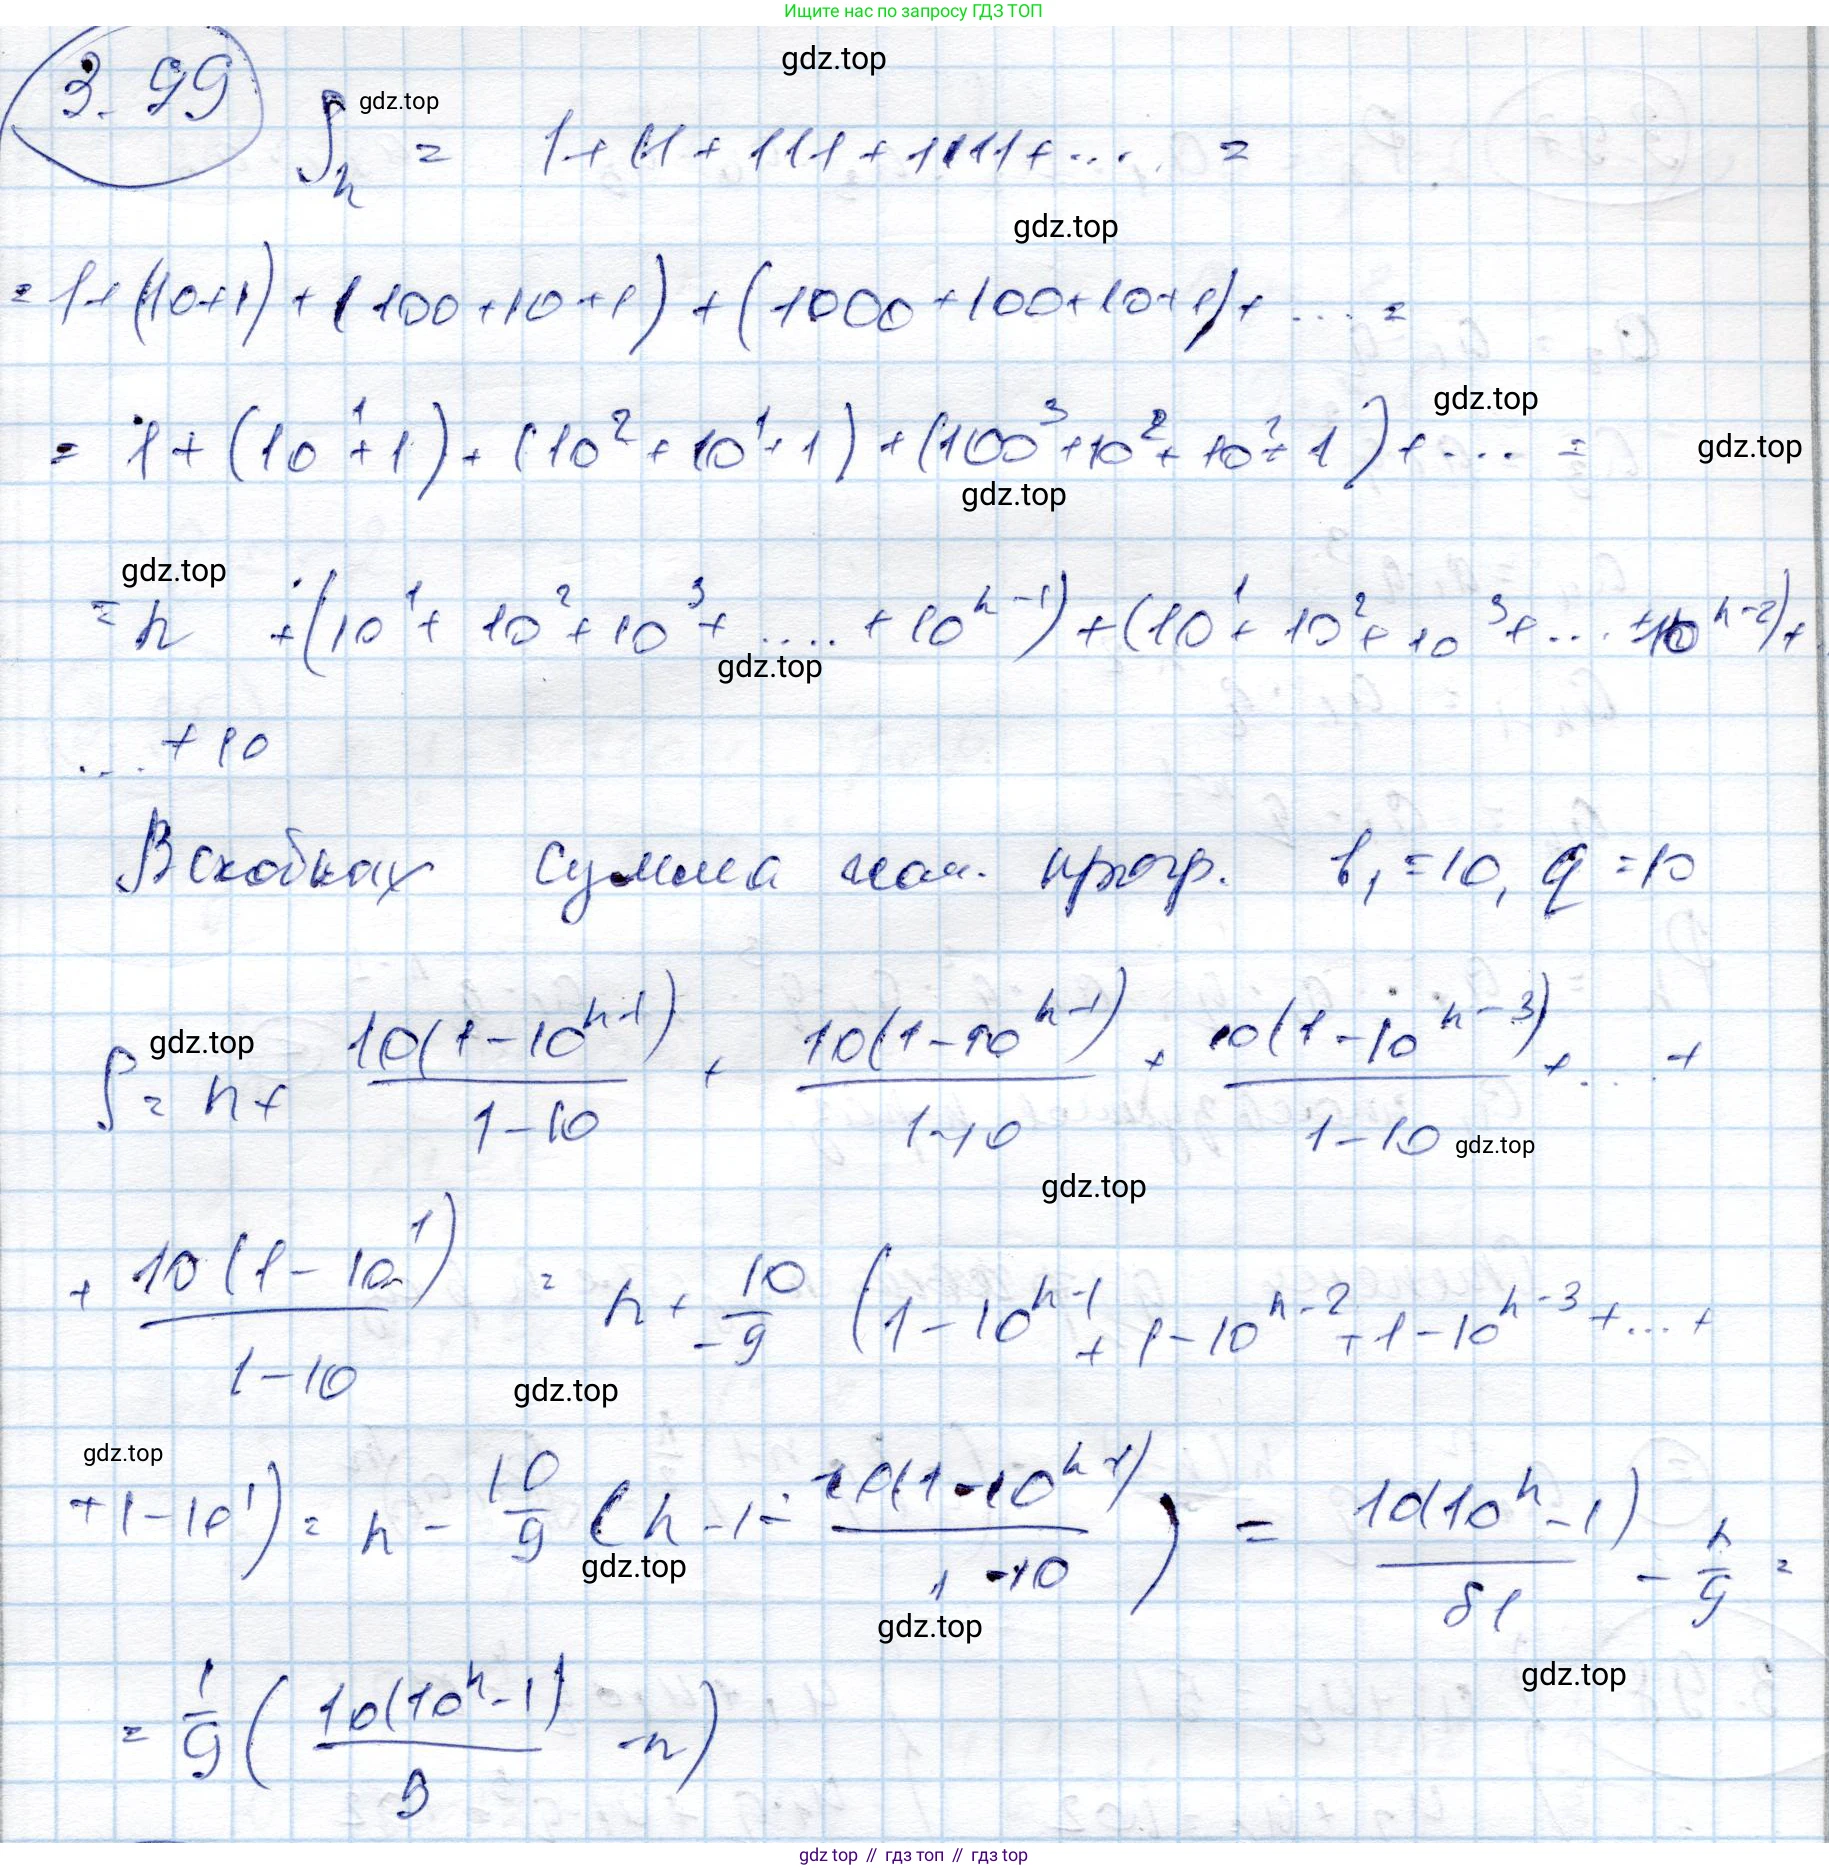 Ищите нас по запросу ГДЗ ТОП
gdz.top
3.99 gdz.top
Sₙ = 1 + 11 + 111 + 1111 + .... =
gdz.top
= 1 + (10+1) + (100+10+1) + (1000+100+10+1) + .... =
gdz.top
= 1 + (10¹+1) + (10²+10¹+1) + (100³+10²+10²+1) + ... =
gdz.top
gdz.top
gdz.top
= n + (10¹ + 10² + 10³ + .... + 10ⁿ⁻¹) + (10¹ + 10² + 10³ + ... + 10ⁿ⁻²) +
gdz.top
... + 10
В скобках сумма геом. прогр. b₁ = 10, q = 10
gdz.top
S = n + 10(1-10ⁿ⁻¹)/(1-10) + 10(1-10ⁿ⁻¹)/(1-10) + 10(1-10ⁿ⁻³)/(1-10) + .... +
gdz.top
gdz.top
+ 10(1-10¹)/(1-10) = n + 10/-9 (1-10ⁿ⁻¹ + 1-10ⁿ⁻² + 1-10ⁿ⁻³ + ... +
gdz.top
gdz.top
+1-10¹) = n - 10/9 (n-1- 10(1-10ⁿ⁻¹)/(1-10)) = 10(10ⁿ-1)/81 - n/9 =
gdz.top
gdz.top
gdz.top
= 1/9 (10(10ⁿ-1)/9 - n)
gdz top // гдз топ // гдз top